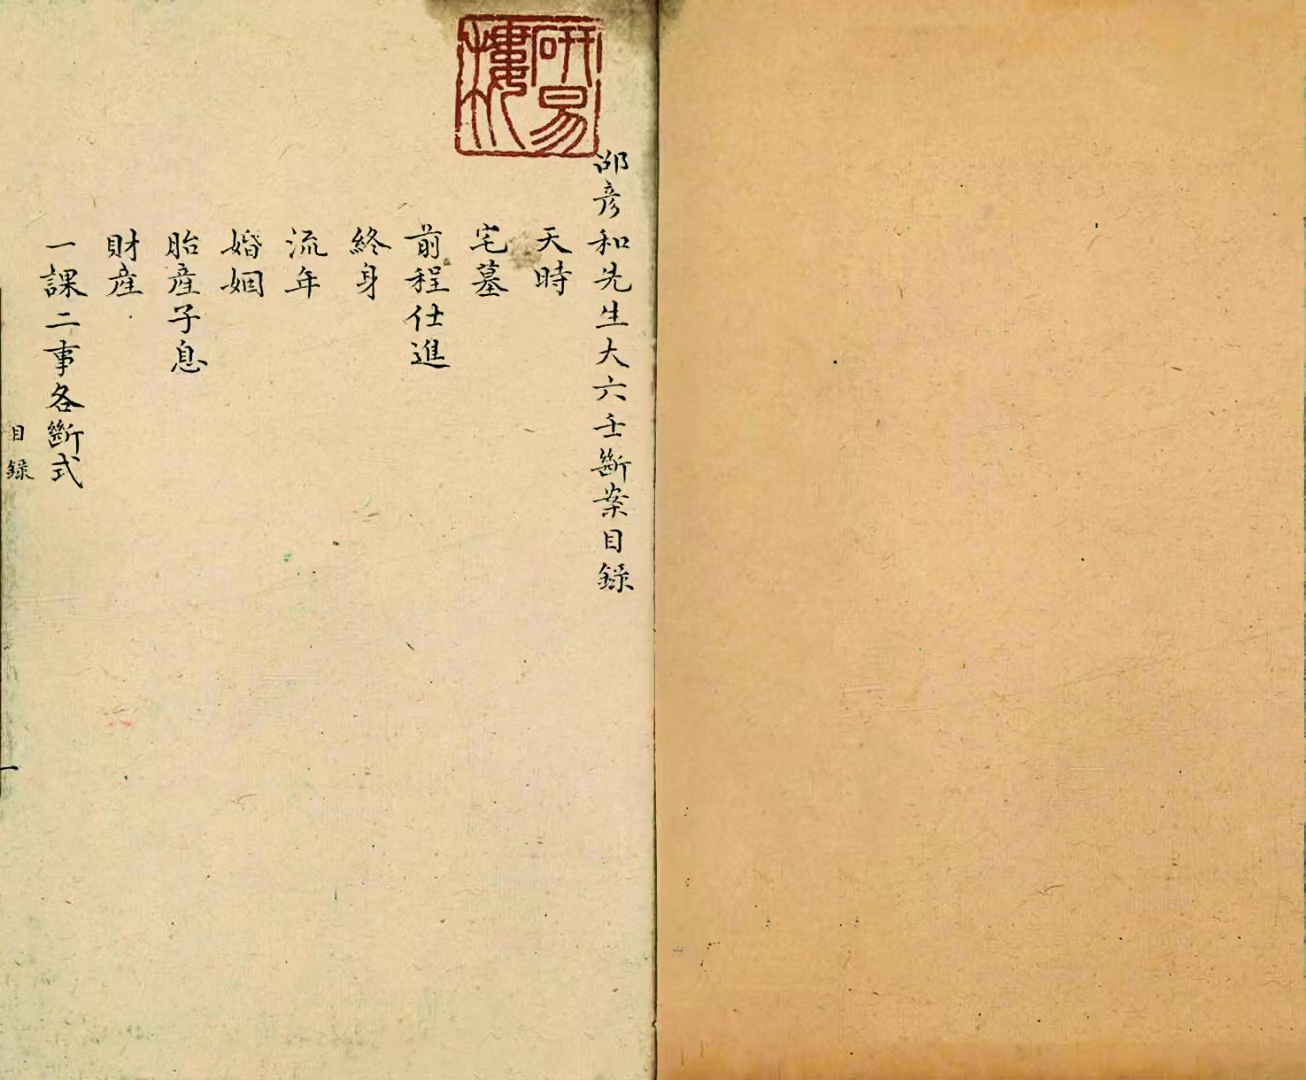 研易樓
邵彦和先生大六壬斷案目錄
天時
宅墓
前程仕進
終身
流年
婚姻
胎產子息
財產
一課二事各斷式
目錄
一